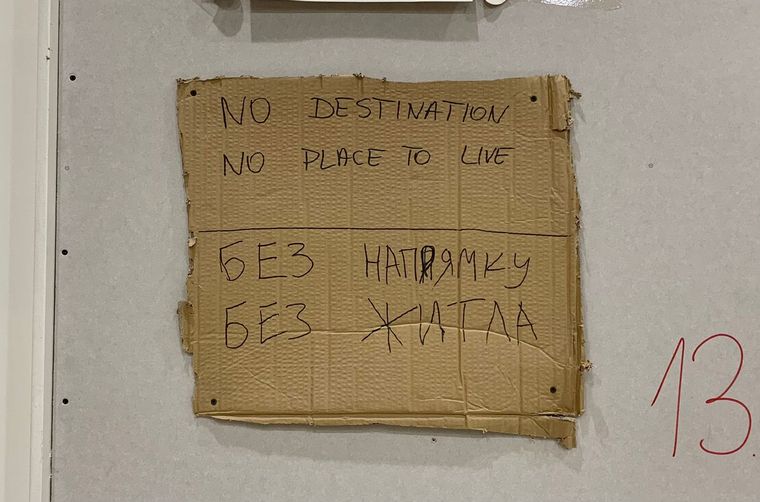 NO DESTINATION
NO PLACE TO LIVE
БЕЗ НАПРЯМКУ
БЕЗ ЖИТЛА
13.